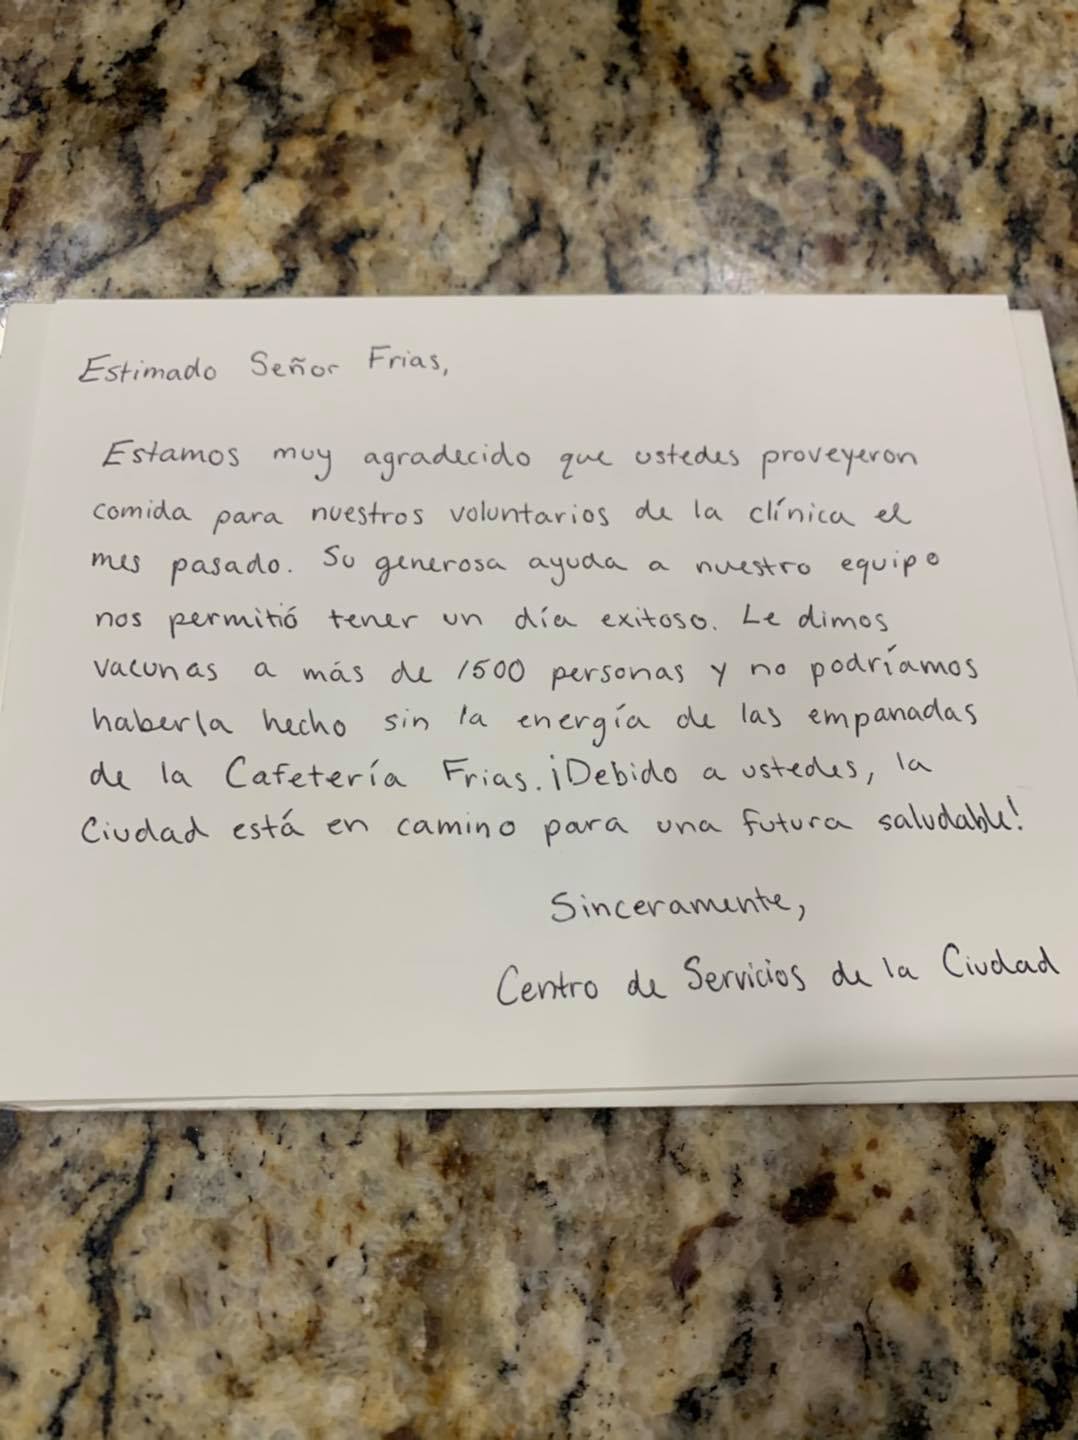 Estimado Señor Frias,
Estamos muy agradecido que ustedes proveyeron
comida para nuestros voluntarios de la clínica el
mes pasado. Su generosa ayuda a nuestro equipo
nos permitió tener un día exitoso. Le dimos
vacunas a más de 1500 personas y no podríamos
haberla hecho sin la energía de las empanadas
de la Cafetería Frias. ¡Debido a ustedes, la
Ciudad está en camino para una futura saludable!
Sinceramente,
Centro de Servicios de la Ciudad